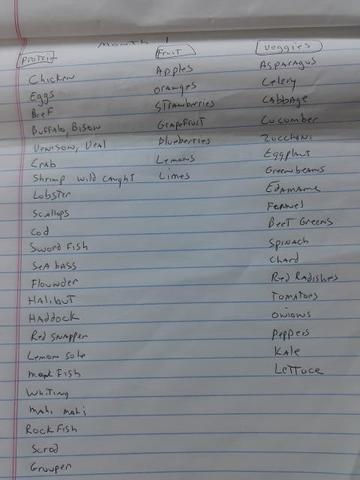 Month 1
Protein
Chicken
Eggs
Beef
Buffalo, Bison
Venison, Veal
Crab
Shrimp wild caught
Lobster
Scallops
Cod
Sword Fish
Sea bass
Flounder
Halibut
Haddock
Red Snapper
Lemon Sole
monk Fish
Whiting
mahi mahi
Rock Fish
Scrod
Grouper
Fruit
Apples
oranges
Strawberries
Grapefruit
Blueberries
Lemons
Limes
Veggies
Asparagus
Celery
Cabbage
Cucumber
Zucchini
Eggplant
Greenbeans
Edamame
Fennel
Beet Greens
Spinach
Chard
Red Radishes
Tomatoes
Onions
Peppers
Kale
Lettuce